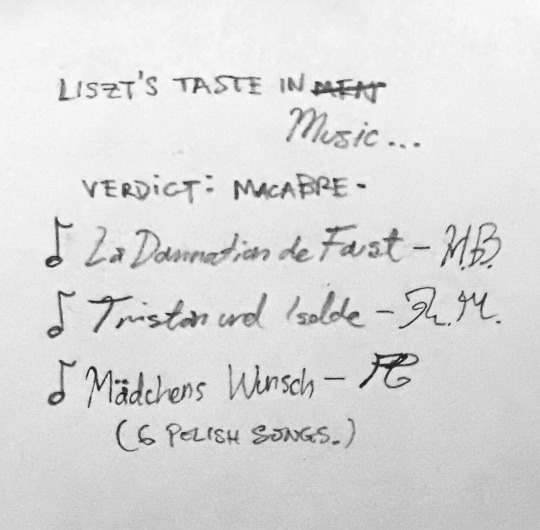 LISZT'S TASTE IN MEN
Music...
VERDICT: MACABRE-
La Damnation de Faust - H.B.
Tristan und Isolde - R.
Mädchens Wunsch - FC
(6 POLISH SONGS.)